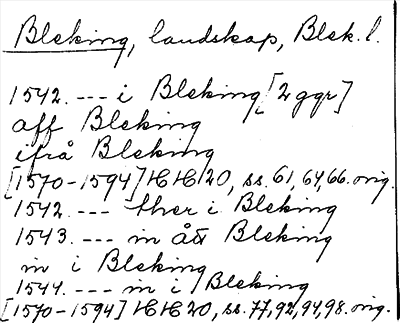 Bleking, landskap, Blek. l.
1542. --- i Bleking [2 ggr]
aff Bleking
ifrå Bleking
[1570-1594] HH 20, ss. 61, 64, 66. orig.
1542. --- ther i Bleking
1543. --- in ått Bleking
in i Bleking
1544. --- in i Bleking
[1570-1594] HH 20, ss. 77, 92, 94, 98. orig.